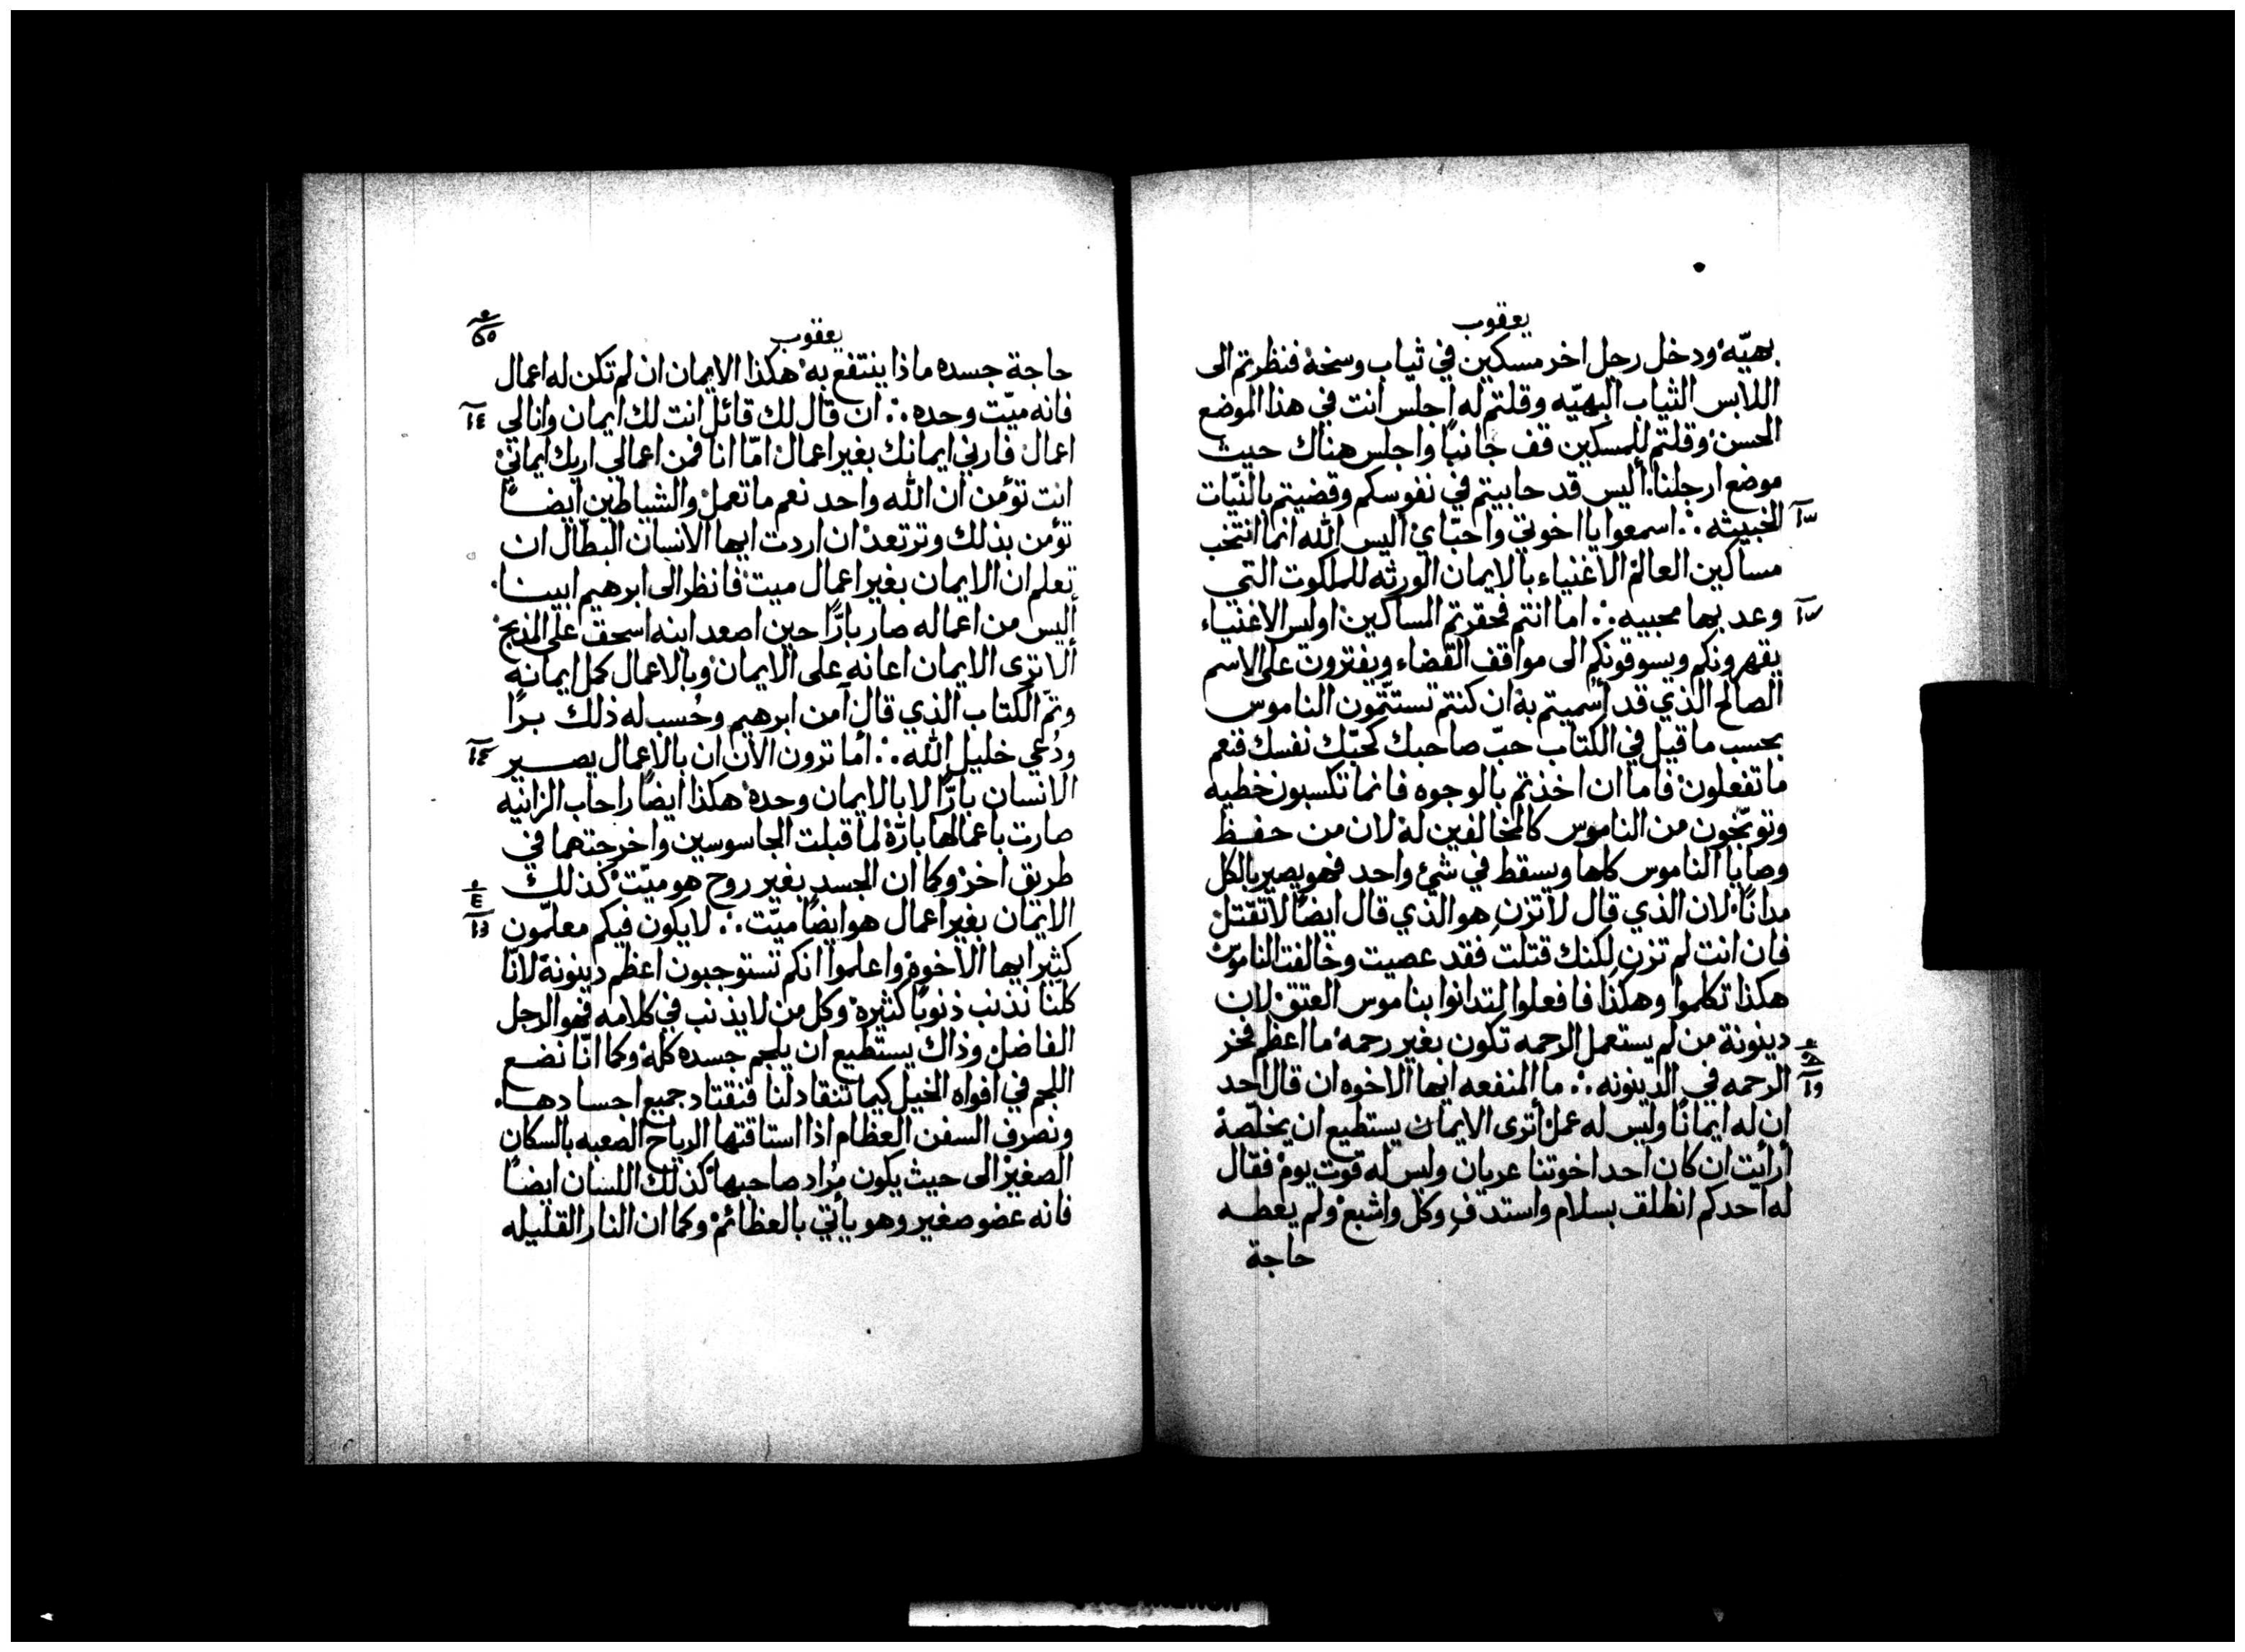 يعقوب
بهيّه ودخل رجل اخر مسكين في ثياب وسخة فنظرتم الى
اللابس الثياب البهيّه وقلتم له اجلس انت في هذا الموضع
الحسن وقلتم للمسكين قف جانبًا واجلس هناك حيث
موضع ارجلنا. أليس قد حابيتم في نفوسكم وقضيتم بالنيّات
الخبيثه ∴ اسمعوا يا اخوتي واحبّاي اليس الله انما انتخب
مساكين العالم الاغنياء بالايمان الورثه للملكوت التي
وعد بها محبيه ∴ اما انتم فحقرتم المساكين اوليس الاغنياء
يقهرونكم ويسوقونكم الى مواقف القضاء ويفترون على الاسم
الصالح الذي قد أسميتم به ان كنتم تستتمّون الناموس
بحسب ما قيل في الكتاب حبّ صاحبك كحبّك نفسك فنعم
ما تفعلون فاما ان اخذتم بالوجوه فانما تكسبون خطيه
وتوبّخون من الناموس كالمخالفين له لان من حفظ
وصايا الناموس كلها ويسقط في شيء واحد فهو يصير بالكل
مدانًا لان الذي قال لا تزنِ هو الذي قال ايضًا لا تقتل
فان انت لم تزنِ لكنك قتلت فقد عصيت وخالفت الناموس
هكذا تكلموا وهكذا فافعلوا لتدانوا بناموس العتق لان
دينونة من لم يستعمل الرحمه تكون بغير رحمه ما اعظم فخر
الرحمه في الدينونه ∴ ما المنفعه ايها الاخوه ان قال احد
ان له ايمانًا وليس له عمل أترى الايمان يستطيع ان يخلّصه
أرأيت ان كان احد اخوتنا عريان وليس له قوت يوم فقال
له احدكم انطلق بسلام واستدفِ وكل واشبع ولم يعطه
حاجة
يعقوب
حاجة جسده ماذا ينتفع به هكذا الايمان ان لم تكن له اعمال
فانه ميّت وحده ∴ ان قال لك قائل انت لك ايمان وانا لي
١٤
اعمال فارني ايمانك بغير اعمال امّا انا فمن اعمالي اريك ايماني
انت تؤمن ان الله واحد نعم ما تعمل والشياطين ايضًا
تؤمن بذلك وترتعد ان اردت ايها الانسان البطّال ان
تعلم ان الايمان بغير اعمال ميت فانظر الى ابرهيم ابينا.
أليس من اعماله صار بارًّا حين اصعد ابنه اسحق على المذبح
الا ترى الايمان اعانه على الايمان وبالاعمال كمل ايمانه
وتمّ الكتاب الذي قال آمن ابرهيم وحُسب له ذلك برًا
ودُعي خليل الله ∴ أما ترون الان ان بالاعمال يصير
الانسان بارًّا لا بالايمان وحده هكذا ايضًا راحاب الزانيه
صارت باعمالها بارّة لما قبلت الجاسوسين واخرجتهما في
طريق اخر وكما ان الجسد بغير روح هو ميّت كذلك
الايمان بغير اعمال هو ايضًا ميّت ∴ لا يكون فيكم معلّمون
كثير ايها الاخوه واعلموا انكم تستوجبون اعظم دينونة لانّا
كلّنا نذنب ذنوبًا كثيره وكل من لا يذنب في كلامه فهو الرجل
الفاضل وذاك يستطيع ان يلجم جسده كله وكما انّا نضع
اللجم في افواه الخيل كيما تنقاد لنا فنقتاد جميع اجسادها.
ونصرف السفن العظام اذا استاقتها الرياح الصعبه بالسكان
الصغير الى حيث يكون مُراد صاحبها كذلك اللسان ايضًا
فانه عضو صغير وهو يأتي بالعظائم وكما ان النار القليله